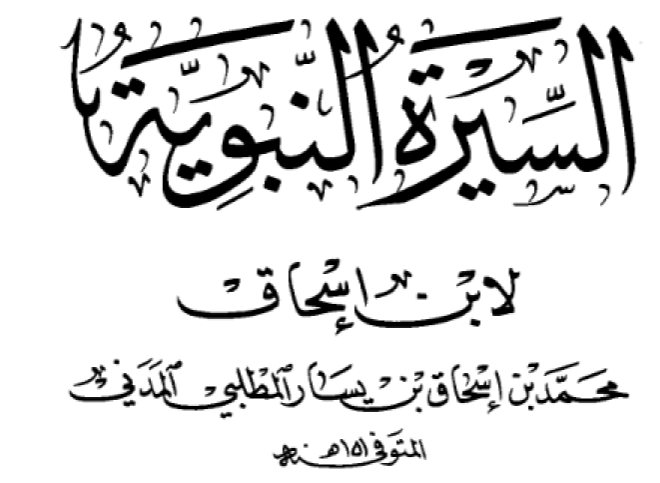 السِّيرَة النَّبَوِيَّة
لابن إسحاق
محمَّد بْن إسْحَاق بْن يَسَار المطلبي المَدَني
المتوفى ١٥١ هـ سنة